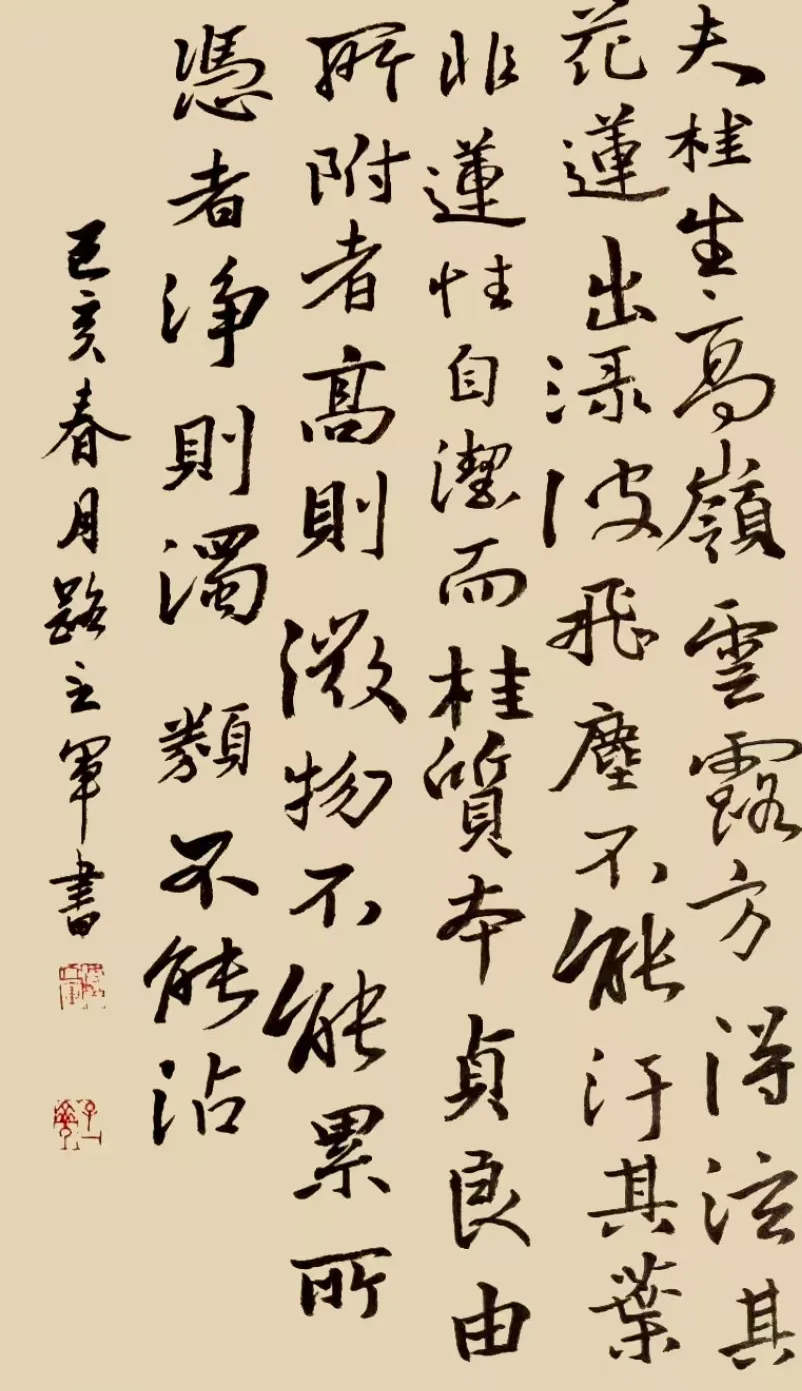 夫桂生高嶺雲露方得泫其
花蓮出淥波飛塵不能汙其葉
非蓮性自潔而桂質本貞良由
所附者高則微物不能累所
憑者淨則濁類不能沾
己亥春月路之軍書